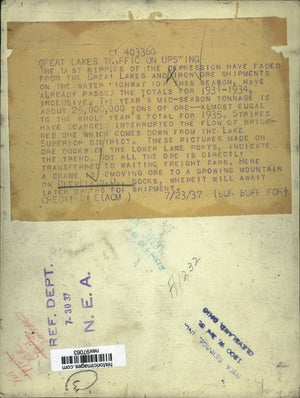 403360
GREAT LAKES TRAFFIC ON UPSWING
THE LAST RIPPLES OF THE DEPRESSION HAVE FADED
FROM THE GREAT LAKES AND IRON ORE SHIPMENTS
ON THE WATER HIGHWAY FOR THIS SEASON, HAVE
ALREADY PASSED THE TOTALS FOR 1931-1934,
INCLUSIVE. THE YEAR'S MID-SEASON TONNAGE IS
ABOUT 25,000,000 TONS OF ORE--ALMOST EQUAL
TO THE WHOLE YEAR'S TOTAL FOR 1935. STRIKES
HAVE SCARCELY INTERRUPTED THE FLOW OF BRIGHT
RED ORE WHICH COMES DOWN FROM THE LAKE
SUPERIOR DISTRICT. THESE PICTURES MADE ON
ORE DOCKS OF THE LOWER LAKE PORTS, INDICATE
THE TREND. NOT ALL THE ORE IS DIRECTLY
TRANSFERRED TO WAITING FREIGHT CARS. HERE
A CRANE IS MOVING ORE TO A GROWING MOUNTAIN
ON CLEVELAND, O., DOCKS, WHERE IT WILL AWAIT
LATER ORDERS FOR SHIPMENT.
CREDIT LINE (ACME) 7/23/37 (BUR BUFF FOR)
REF. DEPT.
7-30 37
N. E. A.
H1232
NEA SERVICE, INC.
1200 W. 3rd St.
CLEVELAND, OHIO
historicimages.com